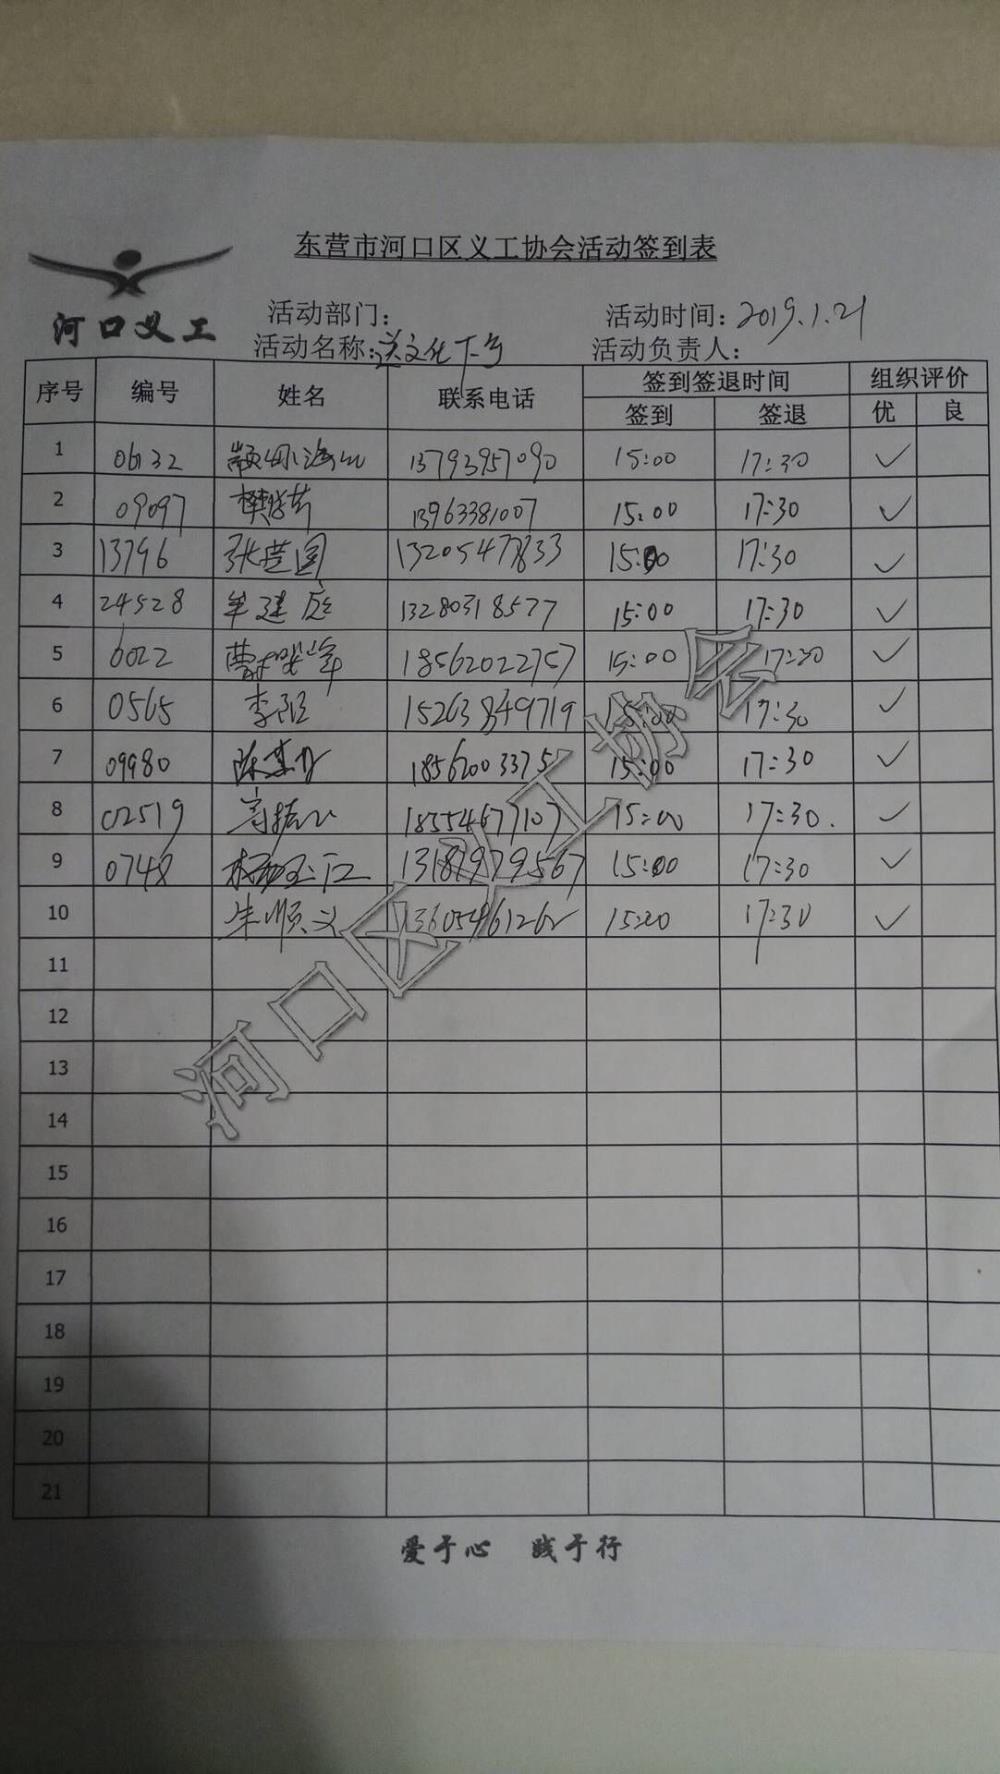 东营市河口区义工协会活动签到表
河口义工
活动部门: 活动时间: 2019.1.21
活动名称: 送文化下乡 活动负责人:
序号 编号 姓名 联系电话 签到签退时间 组织评价
签到 签退 优 良
1 06132 13793957090 15:00 17:30 ✓
2 09097 樊 13963381007 15:00 17:30 ✓
3 13796 张营园 13205477833 15:00 17:30 ✓
4 24528 牟建 13280318577 15:00 17:30 ✓
5 6022 曹 峰 18562022757 15:00 17:30 ✓
6 0565 李 15263849719 15:00 17:30 ✓
7 09980 陈 18562003375 15:00 17:30 ✓
8 02519 18554677107 15:00 17:30. ✓
9 0748 杨 江 13181979567 15:00 17:30 ✓
10 朱顺义 13605461262 15:00 17:30 ✓
11
12
13
14
15
16
17
18
19
20
21
河口区义工协会
爱于心 践于行